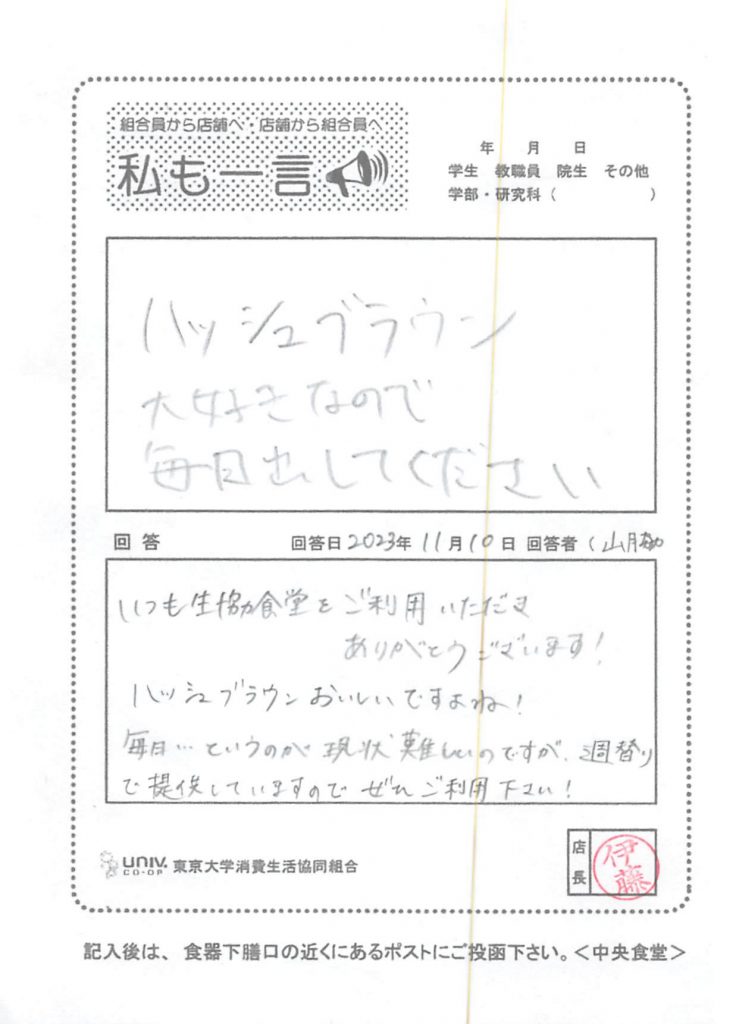 組合員から店舗へ・店舗から組合員へ
私も一言
年 月 日
学生 教職員 院生 その他
学部・研究科( )
ハッシュブラウン
大好きなので
毎日出してください
回答 回答日2023年11月10日 回答者(山崎
いつも生協食堂をご利用いただき
ありがとうございます!
ハッシュブラウンおいしいですよね!
毎日…というのが現状難しいのですが、週替り
で提供していますのでぜひご利用下さい!
UNIV. CO-OP 東京大学消費生活協同組合
店長 伊藤
記入後は、食器下膳口の近くにあるポストにご投函下さい。<中央食堂>